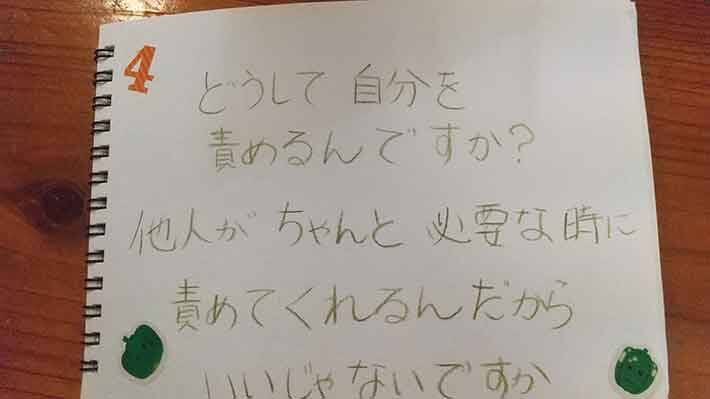 4
どうして 自分を
責めるんですか?
他人が ちゃんと 必要な時に
責めてくれるんだから
いいじゃないですか